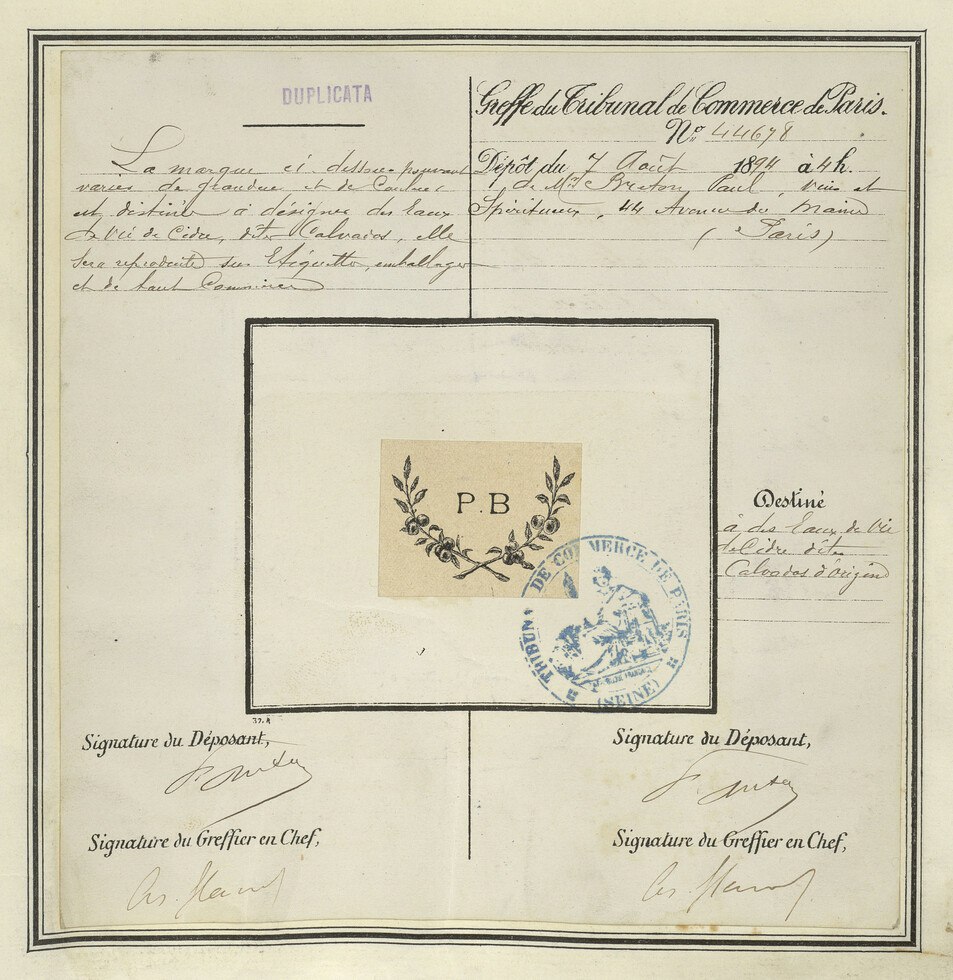 DUPLICATA
La marque ci dessous pouvant
varier de grandeur et de Couleur
est destinée à désigner des Eaux
de vie de Cidre, dites Calvados, elle
sera reproduite sur Etiquettes, emballages
et de tout Commerce
Greffe du Tribunal de Commerce de Paris.
N° 44678
Dépôt du 7 Août 1894 à 4 h.
de Mr Breton, Paul, vins et
Spiritueux, 44 Avenue du Maine
(Paris)
P.B
TRIBUNAL DE COMMERCE DE PARIS
(SEINE)
Destiné
à des Eaux de Vie
de Cidre dites
Calvados d'origine
37.A
Signature du Déposant,
Signature du Greffier en Chef,
Signature du Déposant,
Signature du Greffier en Chef,